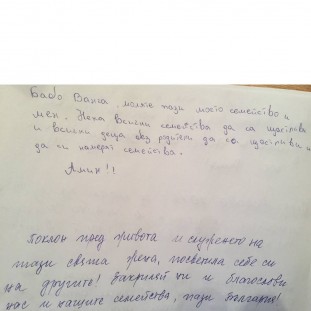 Бабо Ванга, моля те пази моето семейство и
мен. Нека всички семейства да са щастливи
и всички деца без родители да са щастливи и
да си намерат семейства.
Амин!!
Поклон пред живота и служенето на
тази свята жена, посветила себе си
на другите! Закриляй ни и благослови
нас и нашите семейства, пази България!